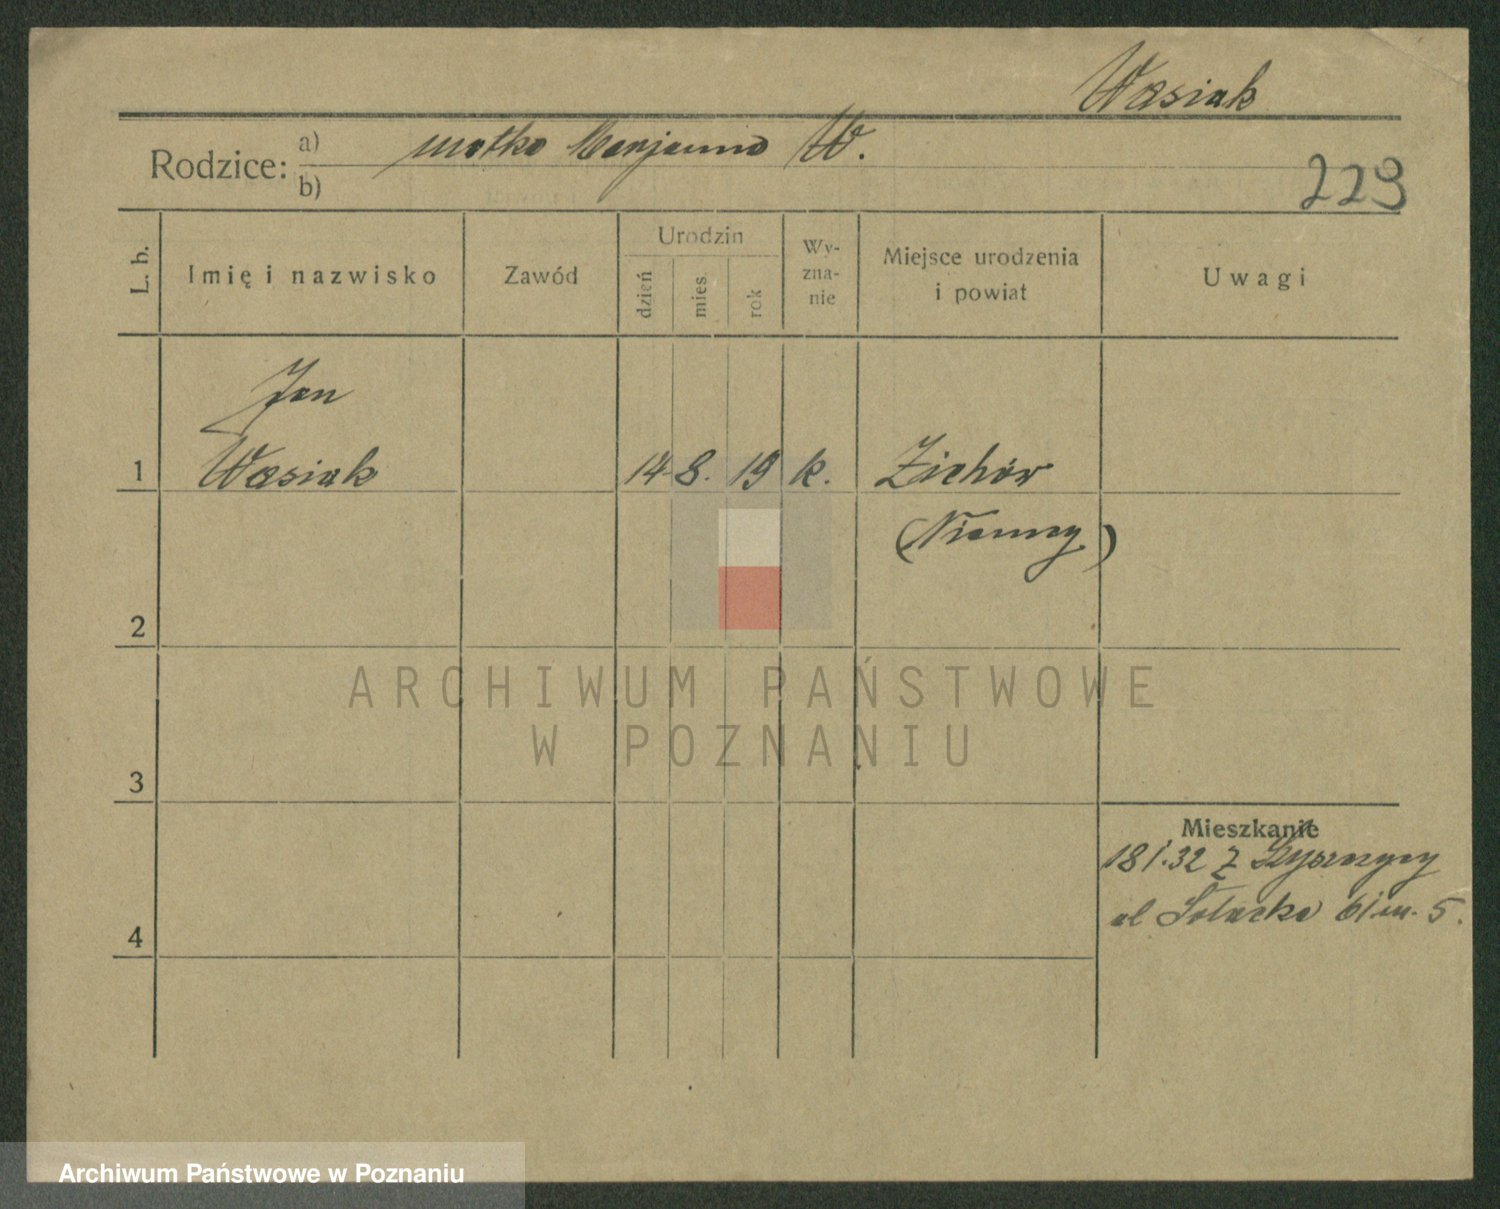 Wasiak
Rodzice: a) matka Marjanna W.
b)
223
L. b.
Imię i nazwisko
Zawód
Urodzin
dzień
mies.
rok
Wy-
zna-
nie
Miejsce urodzenia
i powiat
Uwagi
Jan
1 Wasiak 14 8. 19 k. Zichów
(Niemcy)
2
ARCHIWUM PAŃSTWOWE
W POZNANIU
3
Mieszkanie
18 1.32 z
ul Sołacka 6 m. 5.
4
Archiwum Państwowe w Poznaniu